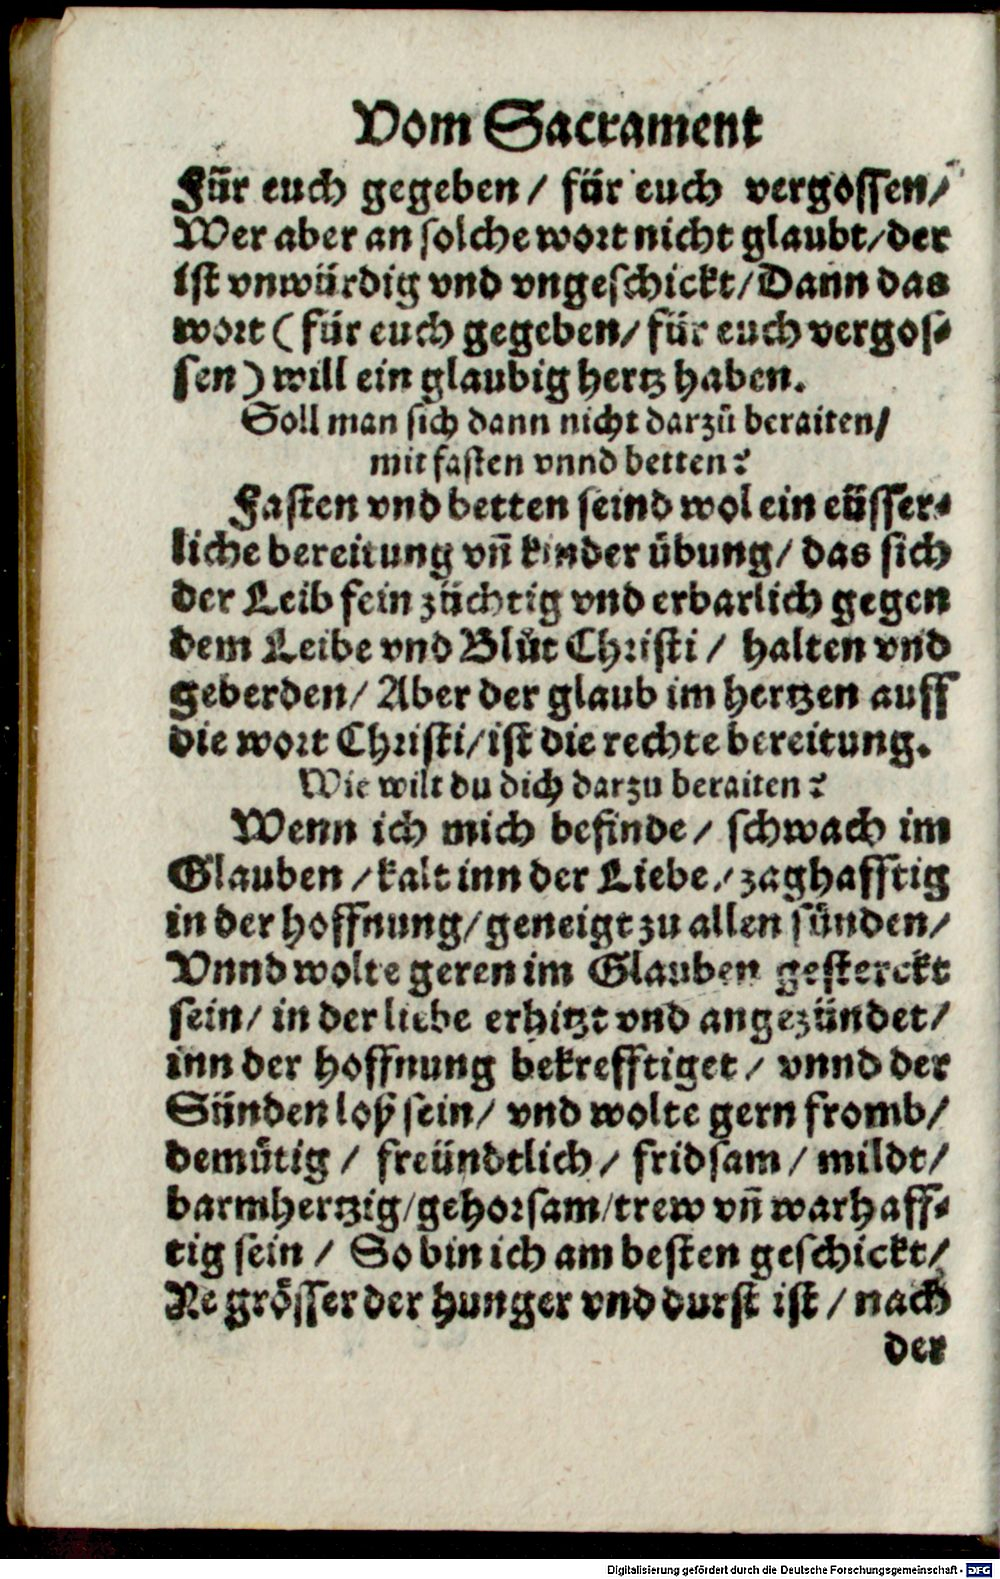 Vom Sacrament
Für euch gegeben / für euch vergossen /
Wer aber an solche wort nicht glaubt / der
ist vnwürdig vnd vngeschickt / Dann das
wort ( für euch gegeben / für euch vergos⸗
sen ) will ein glaubig hertz haben.
Soll man sich dann nicht darzů beraiten /
mit fasten vnnd betten?
Fasten vnd betten seind wol ein eüsser⸗
liche bereitung vn̄ kinder übung / das sich
der Leib fein züchtig vnd erbarlich gegen
dem Leibe vnd Blůt Christi / halten vnd
geberden / Aber der glaub im hertzen auff
die wort Christi / ist die rechte bereitung.
Wie wilt du dich darzu beraiten?
Wenn ich mich befinde / schwach im
Glauben / kalt inn der Liebe / zaghafftig
in der hoffnung / geneigt zu allen sünden /
Vnnd wolte geren im Glauben gesterckt
sein / in der liebe erhitzt vnd angezündet /
inn der hoffnung bekrefftiget / vnnd der
Sünden loß sein / vnd wolte gern fromb /
demütig / freündtlich / fridsam / mildt /
barmhertzig / gehorsam / trew vn̄ warhaff⸗
tig sein / So bin ich am besten geschickt /
Je grösser der hunger vnd durst ist / nach
der
Digitalisierung gefördert durch die Deutsche Forschungsgemeinschaft - DFG